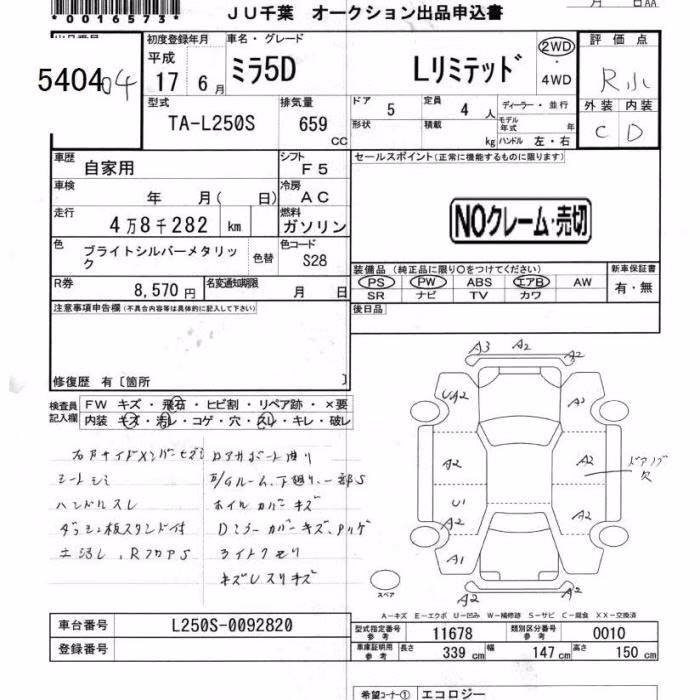 *00016573*
JU千葉 オークション出品申込書
月 日AA
出品番号
54040 04
初度登録年月
平成
17 6 月
車名・グレード
ミラ5D Lリミテッド
2WD
4WD
評価点
R小
外装 内装
C D
型式
TA-L250S
排気量
659 CC
ドア 5
定員 4 人
ディーラー・並行
形状
積載 kg
モデル年式 年
ハンドル 左・右
車歴
自家用
シフト
F5
セールスポイント(正常に機能するものに限ります)
車検
年 月( 日)
冷房
AC
走行
4万8千282 km
燃料
ガソリン
NOクレーム・売切
色
ブライトシルバーメタリック
色替
色コード
S28
R券
8,570円
名変通知期限
月 日
装備品(純正品に限り○をつけてください)
新車保証書
PS PW ABS エアB AW
SR ナビ TV カワ
有・無
後日品
注意事項申告欄(不具合内容等は具体的に記入して下さい)
修復歴 有〔箇所 〕
検査員記入欄
FW キズ・飛石・ヒビ割・リペア跡・×要
内装 キズ・汚レ・コゲ・穴・スレ・キレ・破レ
シートシミ
ハンドルスレ
ホイルカバーキズ
ダッシュ板スタンド付
A3 A2 A2
UA2 A2
A2 A2 ドアノブ欠
U1 A2 A2
A1
A2 A2
スペア
A-キズ E-エクボ U-凹み W-補修跡 S-サビ C-腐食 XX-交換済
車台番号
L250S-0092820
登録番号
型式指定番号 参考
11678
類別区分番号 参考
0010
車庫証明用 参考
長さ 339 cm
幅 147 cm
高さ 150 cm
希望コーナー① エコロジー